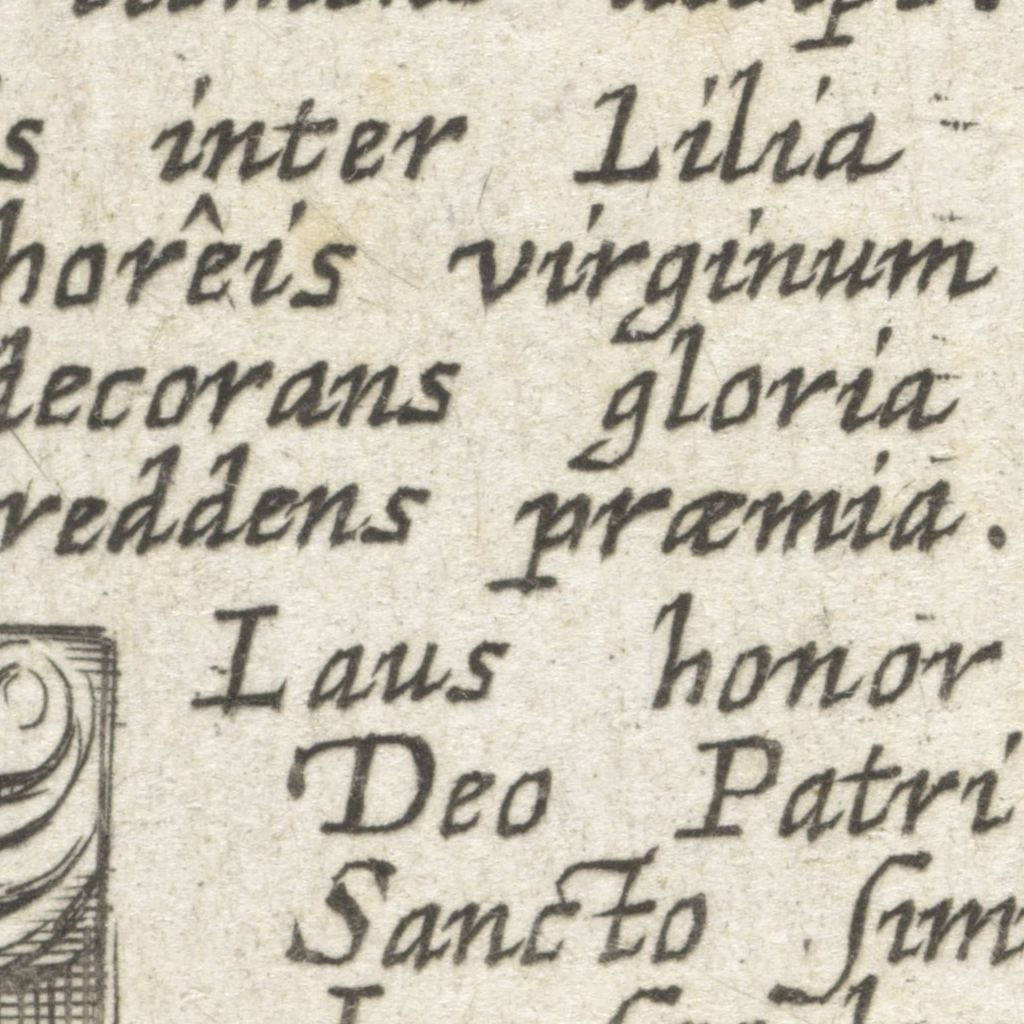 inter Lilia
horêis virginum
decorans gloria
reddens præmia.
Laus honor
Deo Patri
Sancto